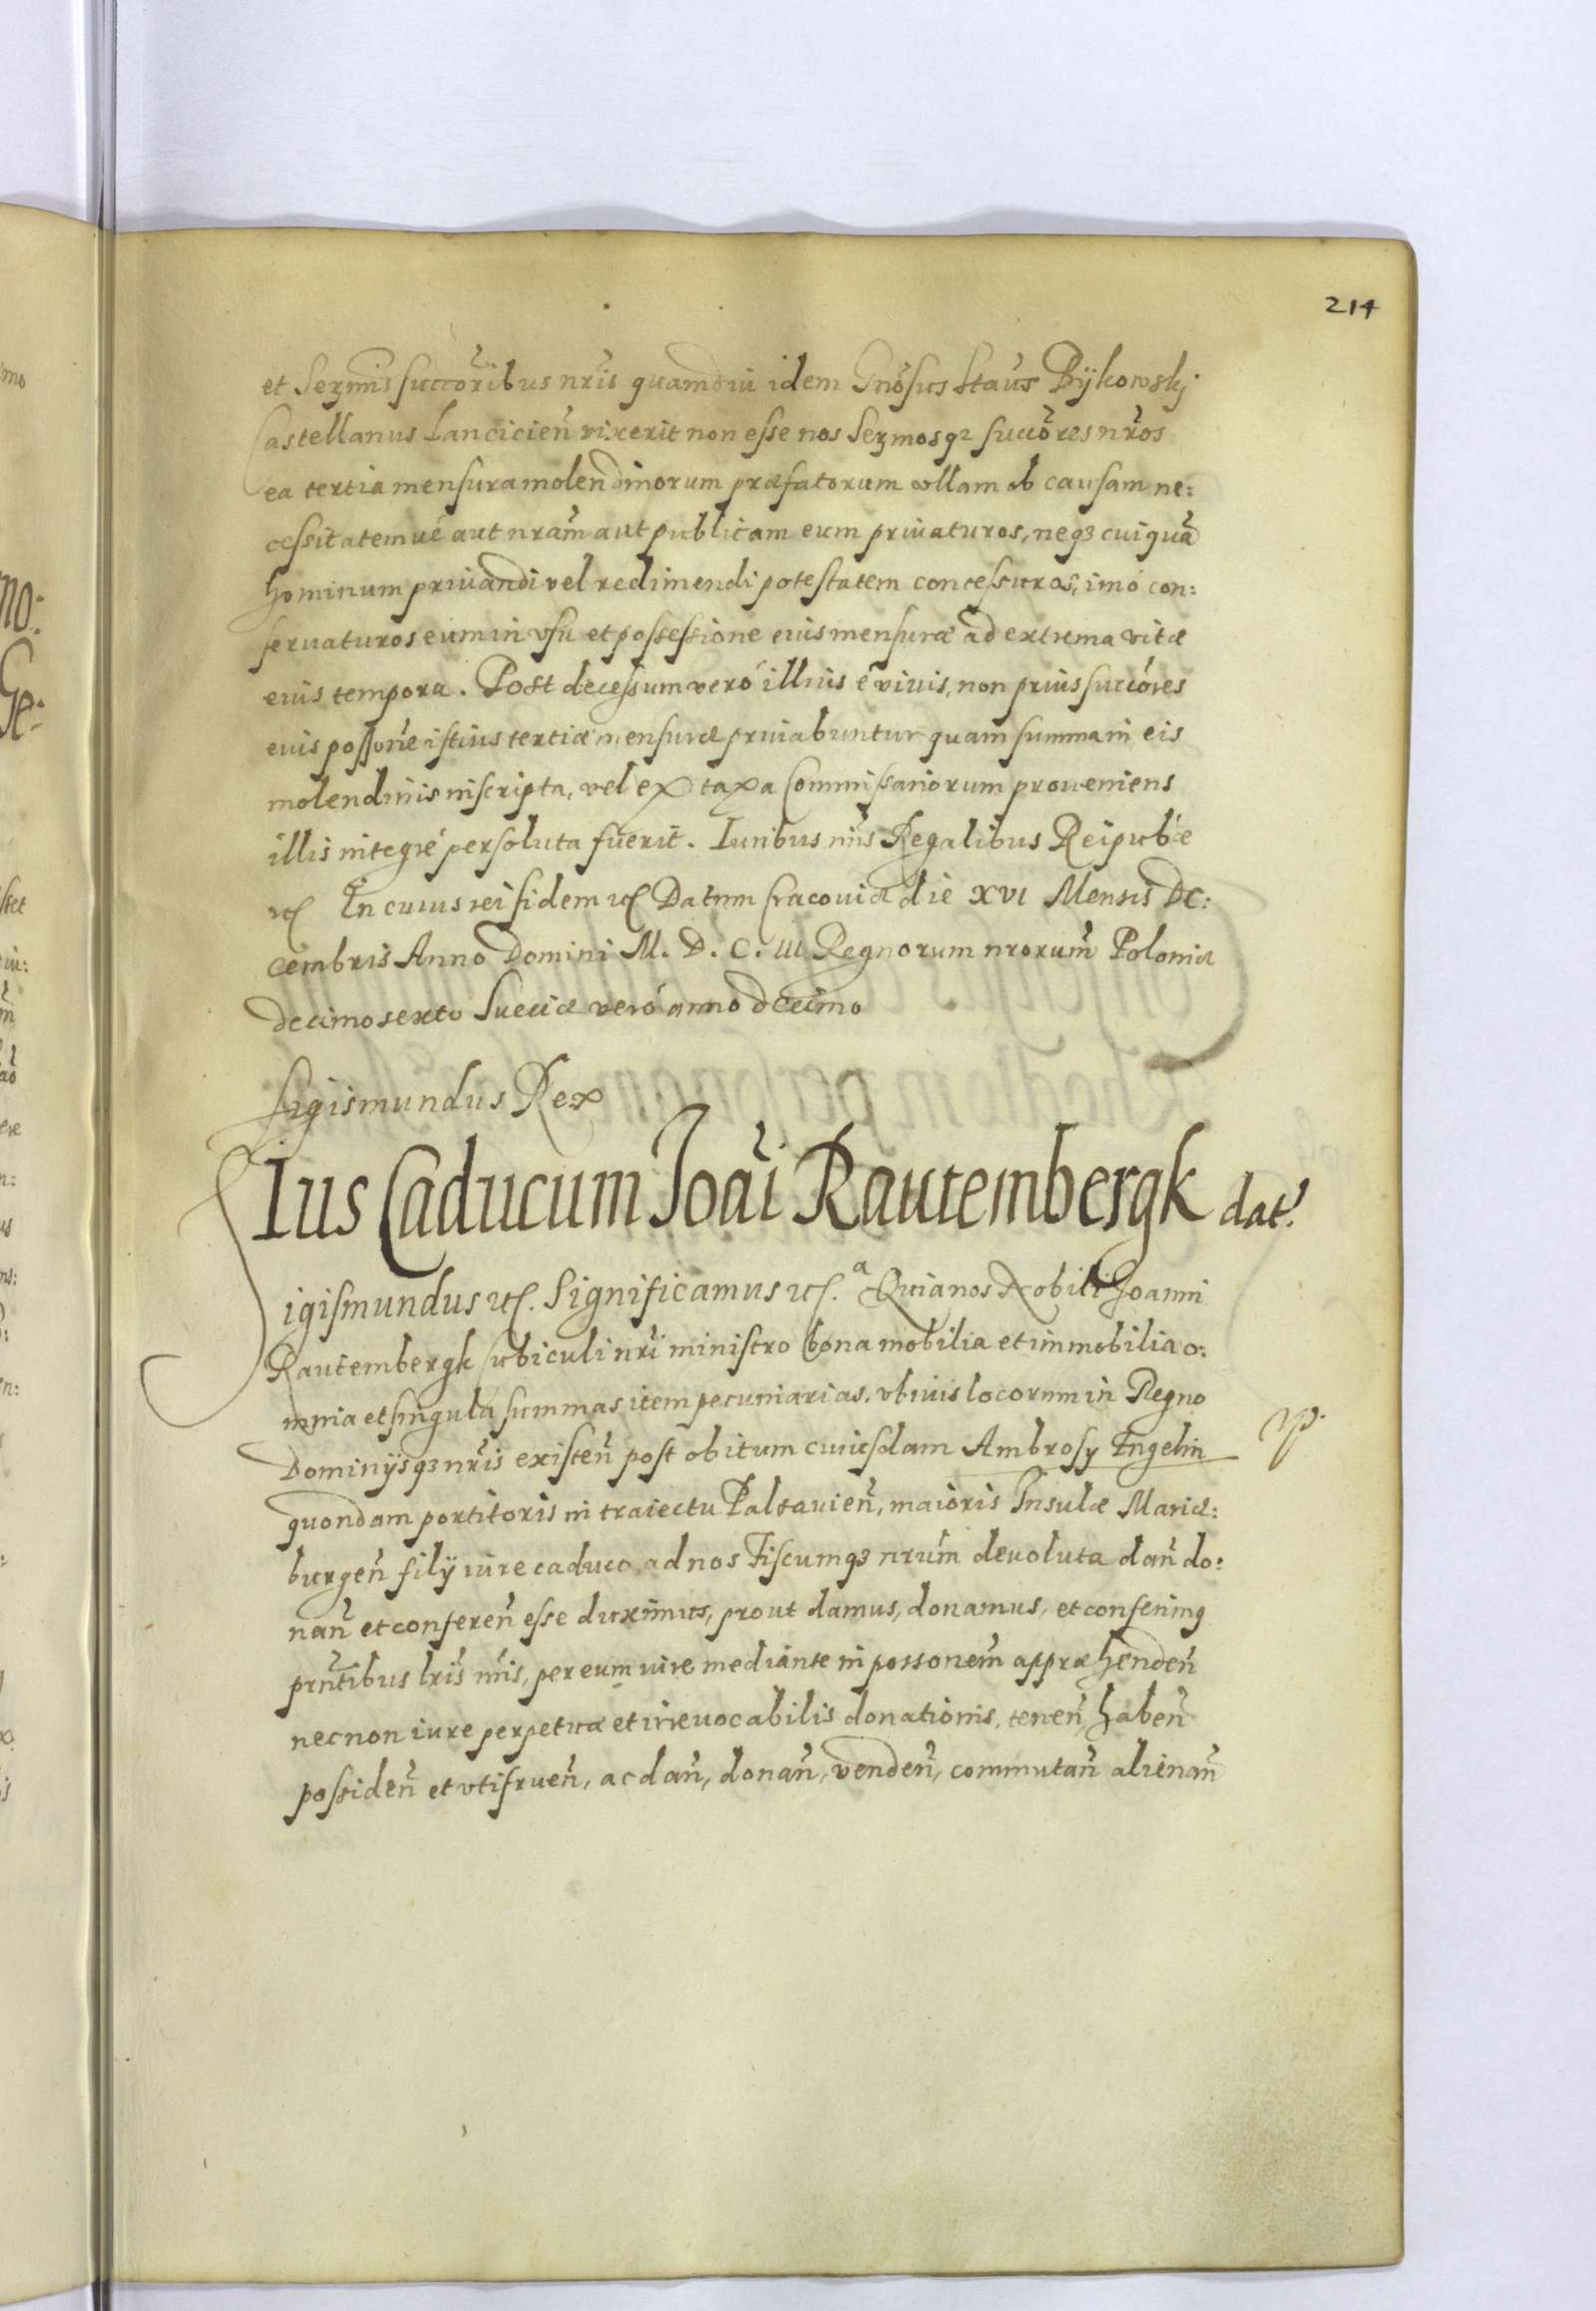 214
et Sermis succoribus nris quamdiu idem Gnosus Staus Bykowskj
Castellanus Lancicien̄ vixerit non esse nos Sermosq₃ succores nros
ea tertia mensura molendinorum præfatorum vllam ob causam ne:
cessitatemué aut nram aut publicam eum priuaturos, neq₃ cuiquā
hominum priuandi vel redimendi potestatem concessuros, imó con:
seruaturos eum in vsu et possessione euis mensuræ ad extrema vitæ
eius tempora. Post decessum veró illius é viuis, non prius succóres
euis possone istius tertiæ mensuræ priuabuntur quam summa in eis
molendinis inscripta, vel ex taxa Commissariorum proueniens
illis integré persoluta fuerit. Iuribus nris Regalibus Reipub̄æ
etc̄ In cuius rei fidem etc̄ Datum Cracoviæ die XVI Mensis De:
cembris Anno Domini M. D. C. III Regnorum nrorum̄ Poloniæ
decimosexto Sueciæ veró anno decimo
Sigismundus Rex
Ius Caducum Joān̄i Rautembergk dat̄.
Sigismundus etc̄. Significamus etc̄.ᵃ Quia nos Nobili Joanni
Rautembergk cubiculi nri ministro bona mobilia et immobilia o:
mnia et singula summas item pecuniarias, vbiuis locorum in Regno
Dominijsq₃ nris existen̄ post obitum cuiusdam Ambrosy Engelin
quondam portitoris in traiectu Paltauien̄, maioris Insulæ Mariæ:
burgen̄ filij iure caduco ad nos Fiscumq₃ nrum̄ deuoluta dan̄ do:
nan̄ et conferen̄ esse duximus, prout damus, donamus, et conferimq
prn̄tibus lris nris, per eum iure mediante in possonem̄ appræhenden̄
necnon iure perpetuæ et irreuocabilis donationis, tenen̄, haben̄
possiden̄ et vtifruen̄, ac dan̄, donan̄, venden̄, commutan̄ alienan̄